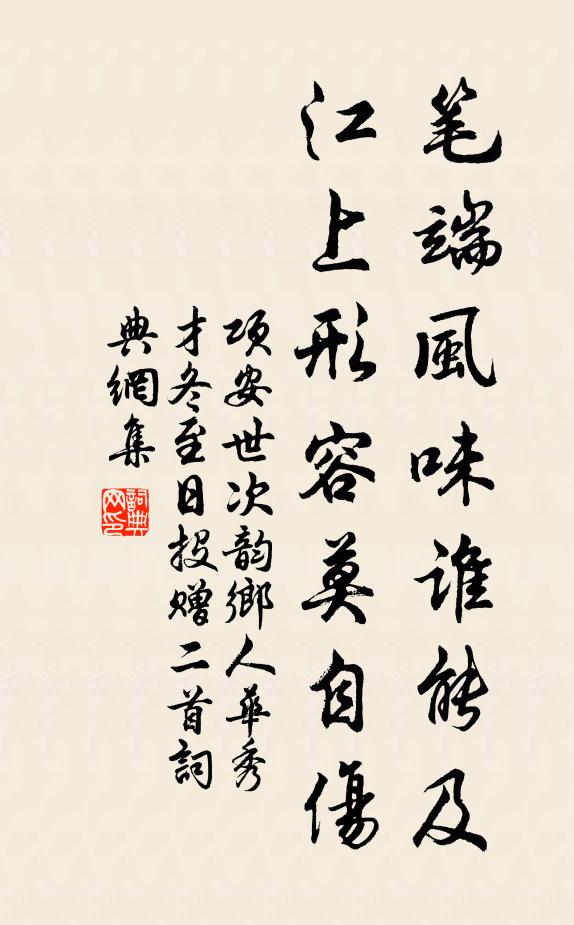 笔端風味誰能及
江上形容莫自傷
项安世次韵鄉人華秀
才冬至日投赠二首詞
典網集
詞典
网印